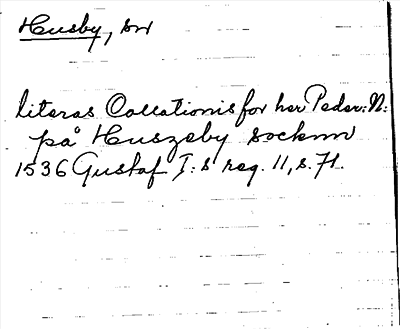 Husby, sn
literas Collationis for her Peder: N:
på Huszeby socknn
1536 Gustaf I:s reg. 11, s. 71.